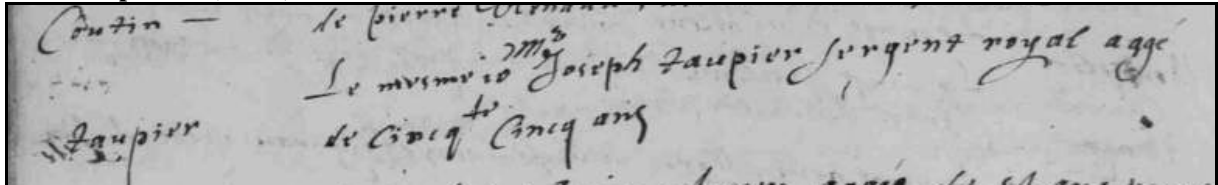 Coutin — de pierre
Le mesme jo Mre Joseph taupier sergent royal aggé
taupier de Cincqte Cincq ans